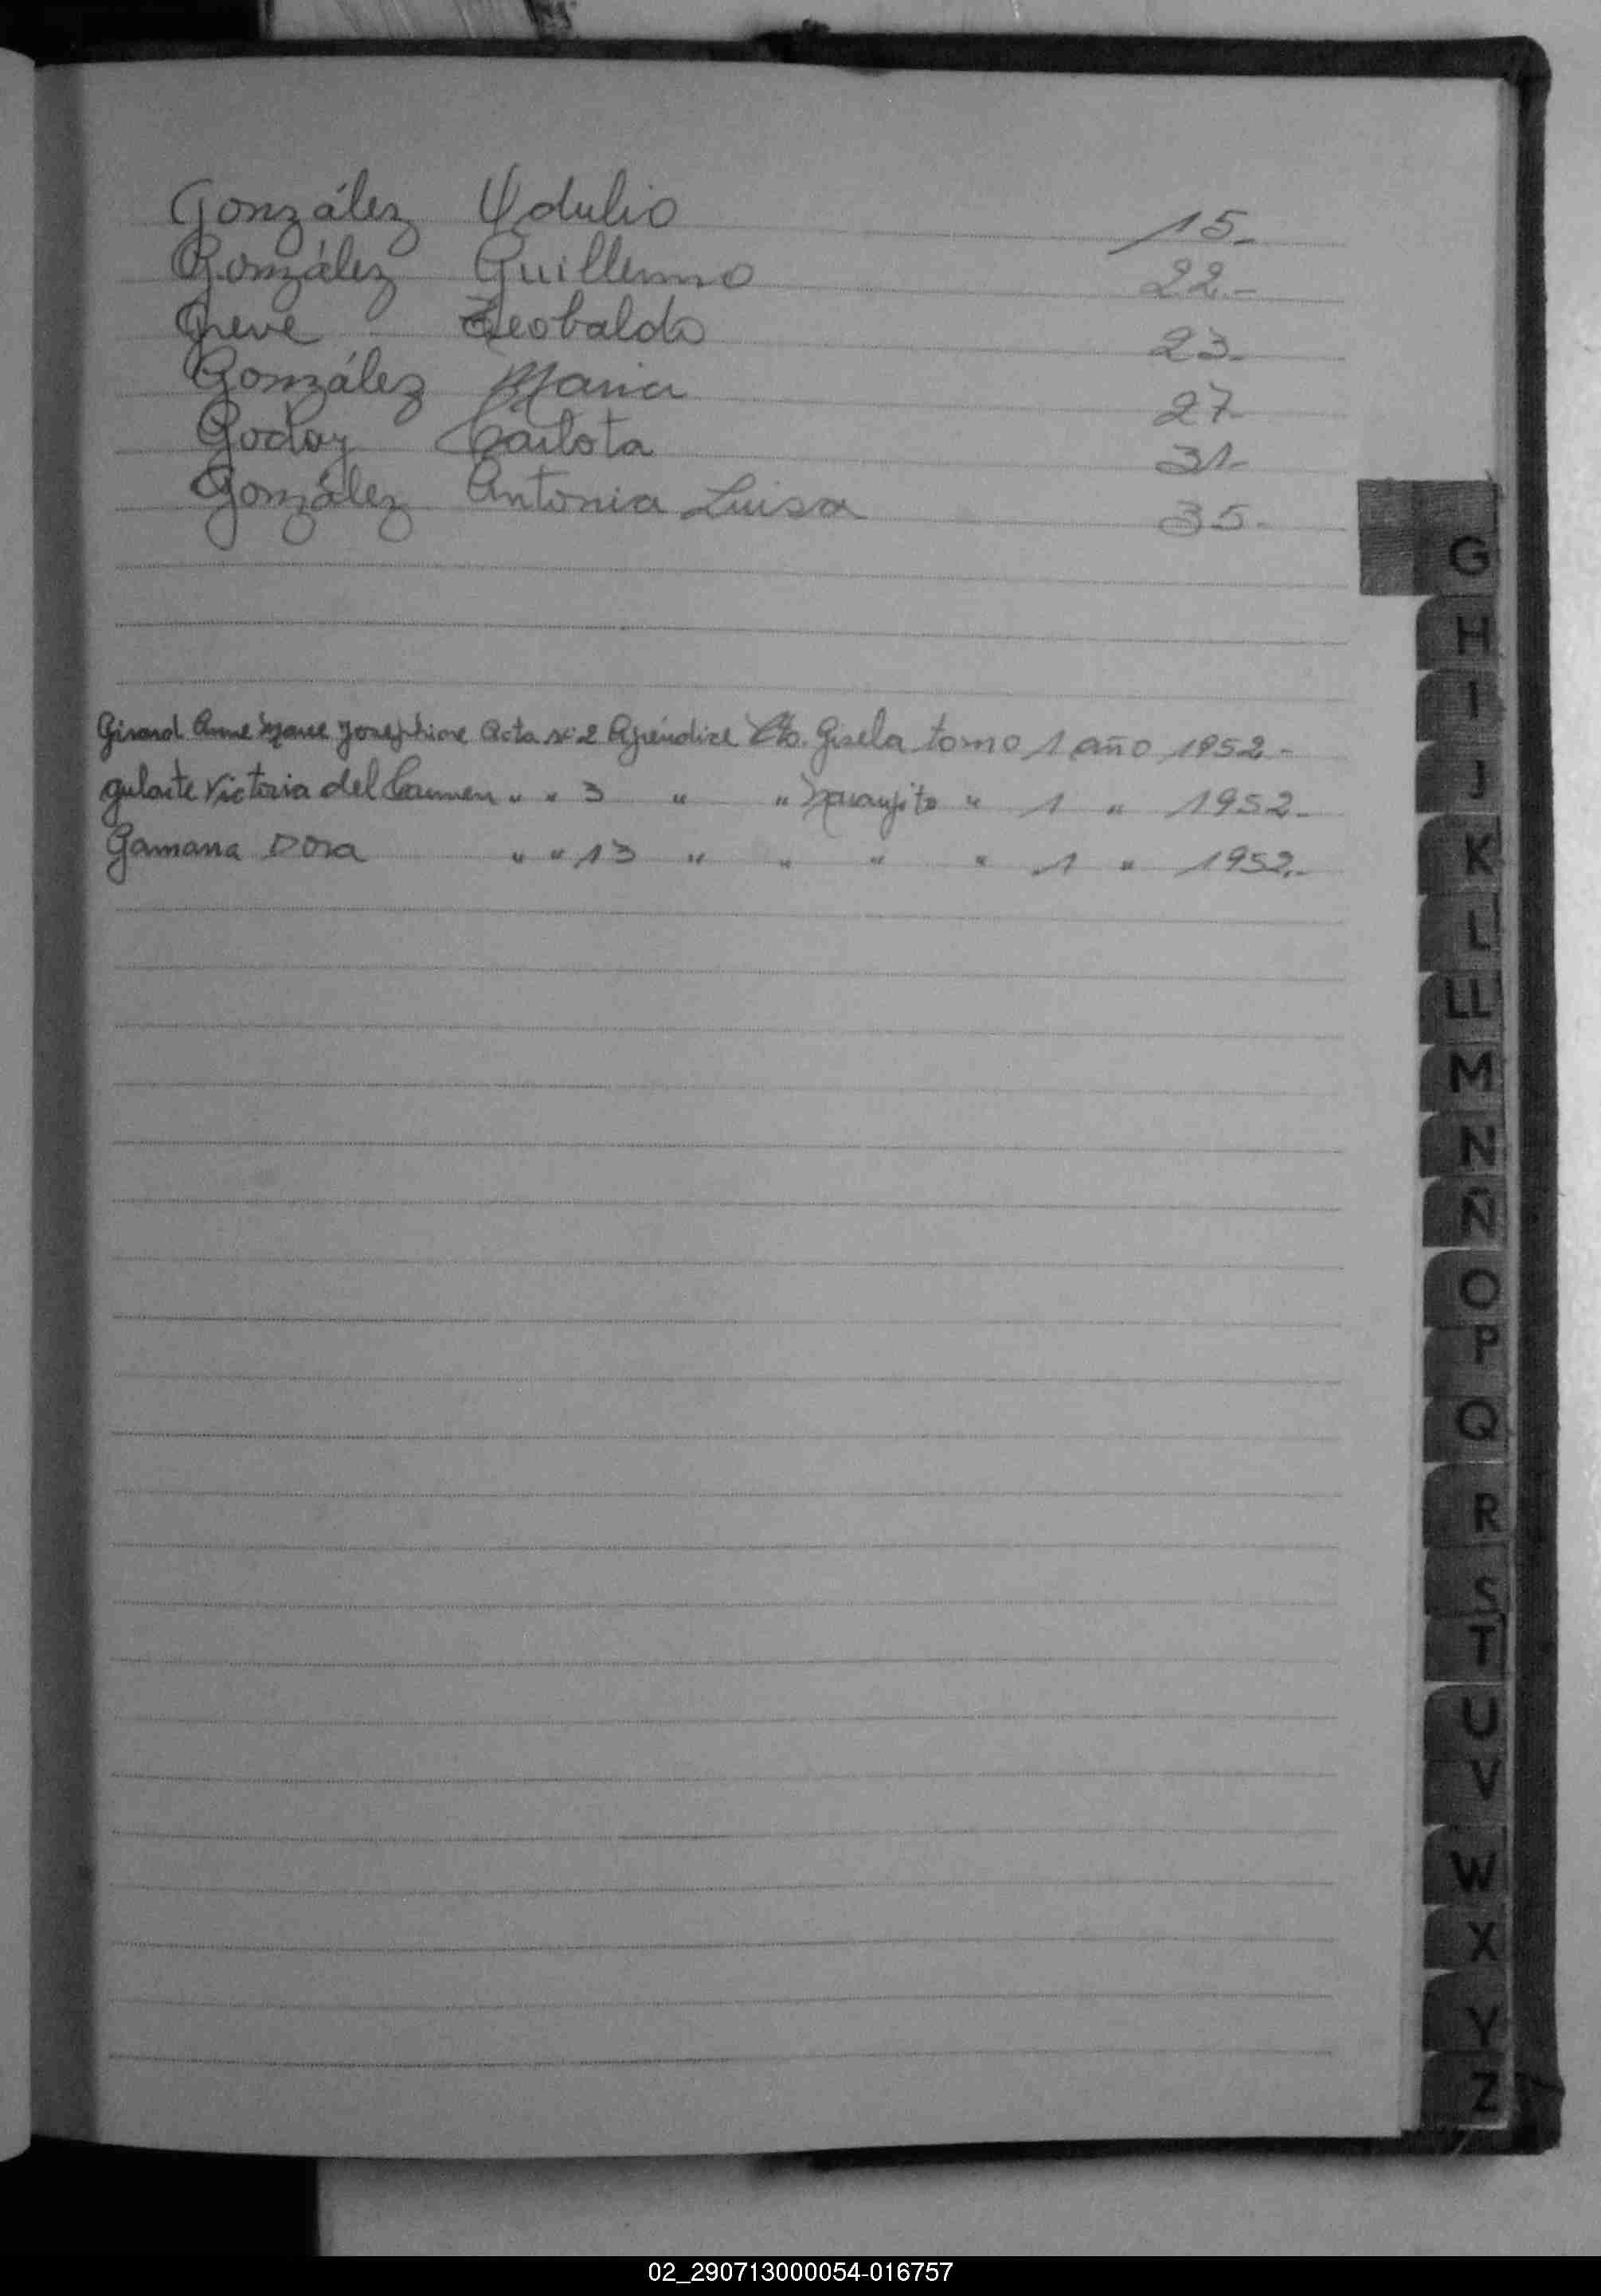 González Ydulio 15.-
González Guillermo 22.-
Greve Teobaldo 23.-
González Maria 27.-
Godoy Carlota 31.-
González Antonia Luisa 35.-
Girard Anne Marie Josephine Acta nº 2 Apéndice Pto. Gisela tomo 1 año 1952.-
Gularte Victoria del Carmen " " 3 " " Naranjito " 1 " 1952.-
Gamarra Dora " " 13 " " " " 1 " 1952.-
G
H
I
J
K
L
LL
M
N
Ñ
O
P
Q
R
S
T
U
V
W
X
Y
Z
02_290713000054-016757